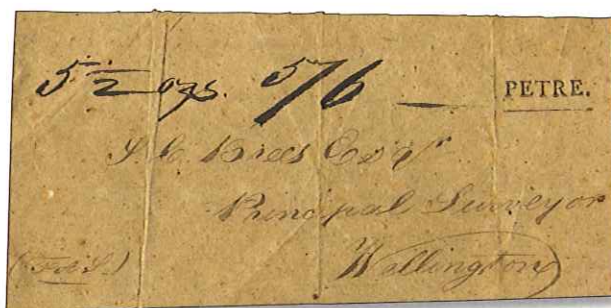 5½ ozs. 5/6 — PETRE.
S. C. Brees Esqr
Principal Surveyor
Wellington